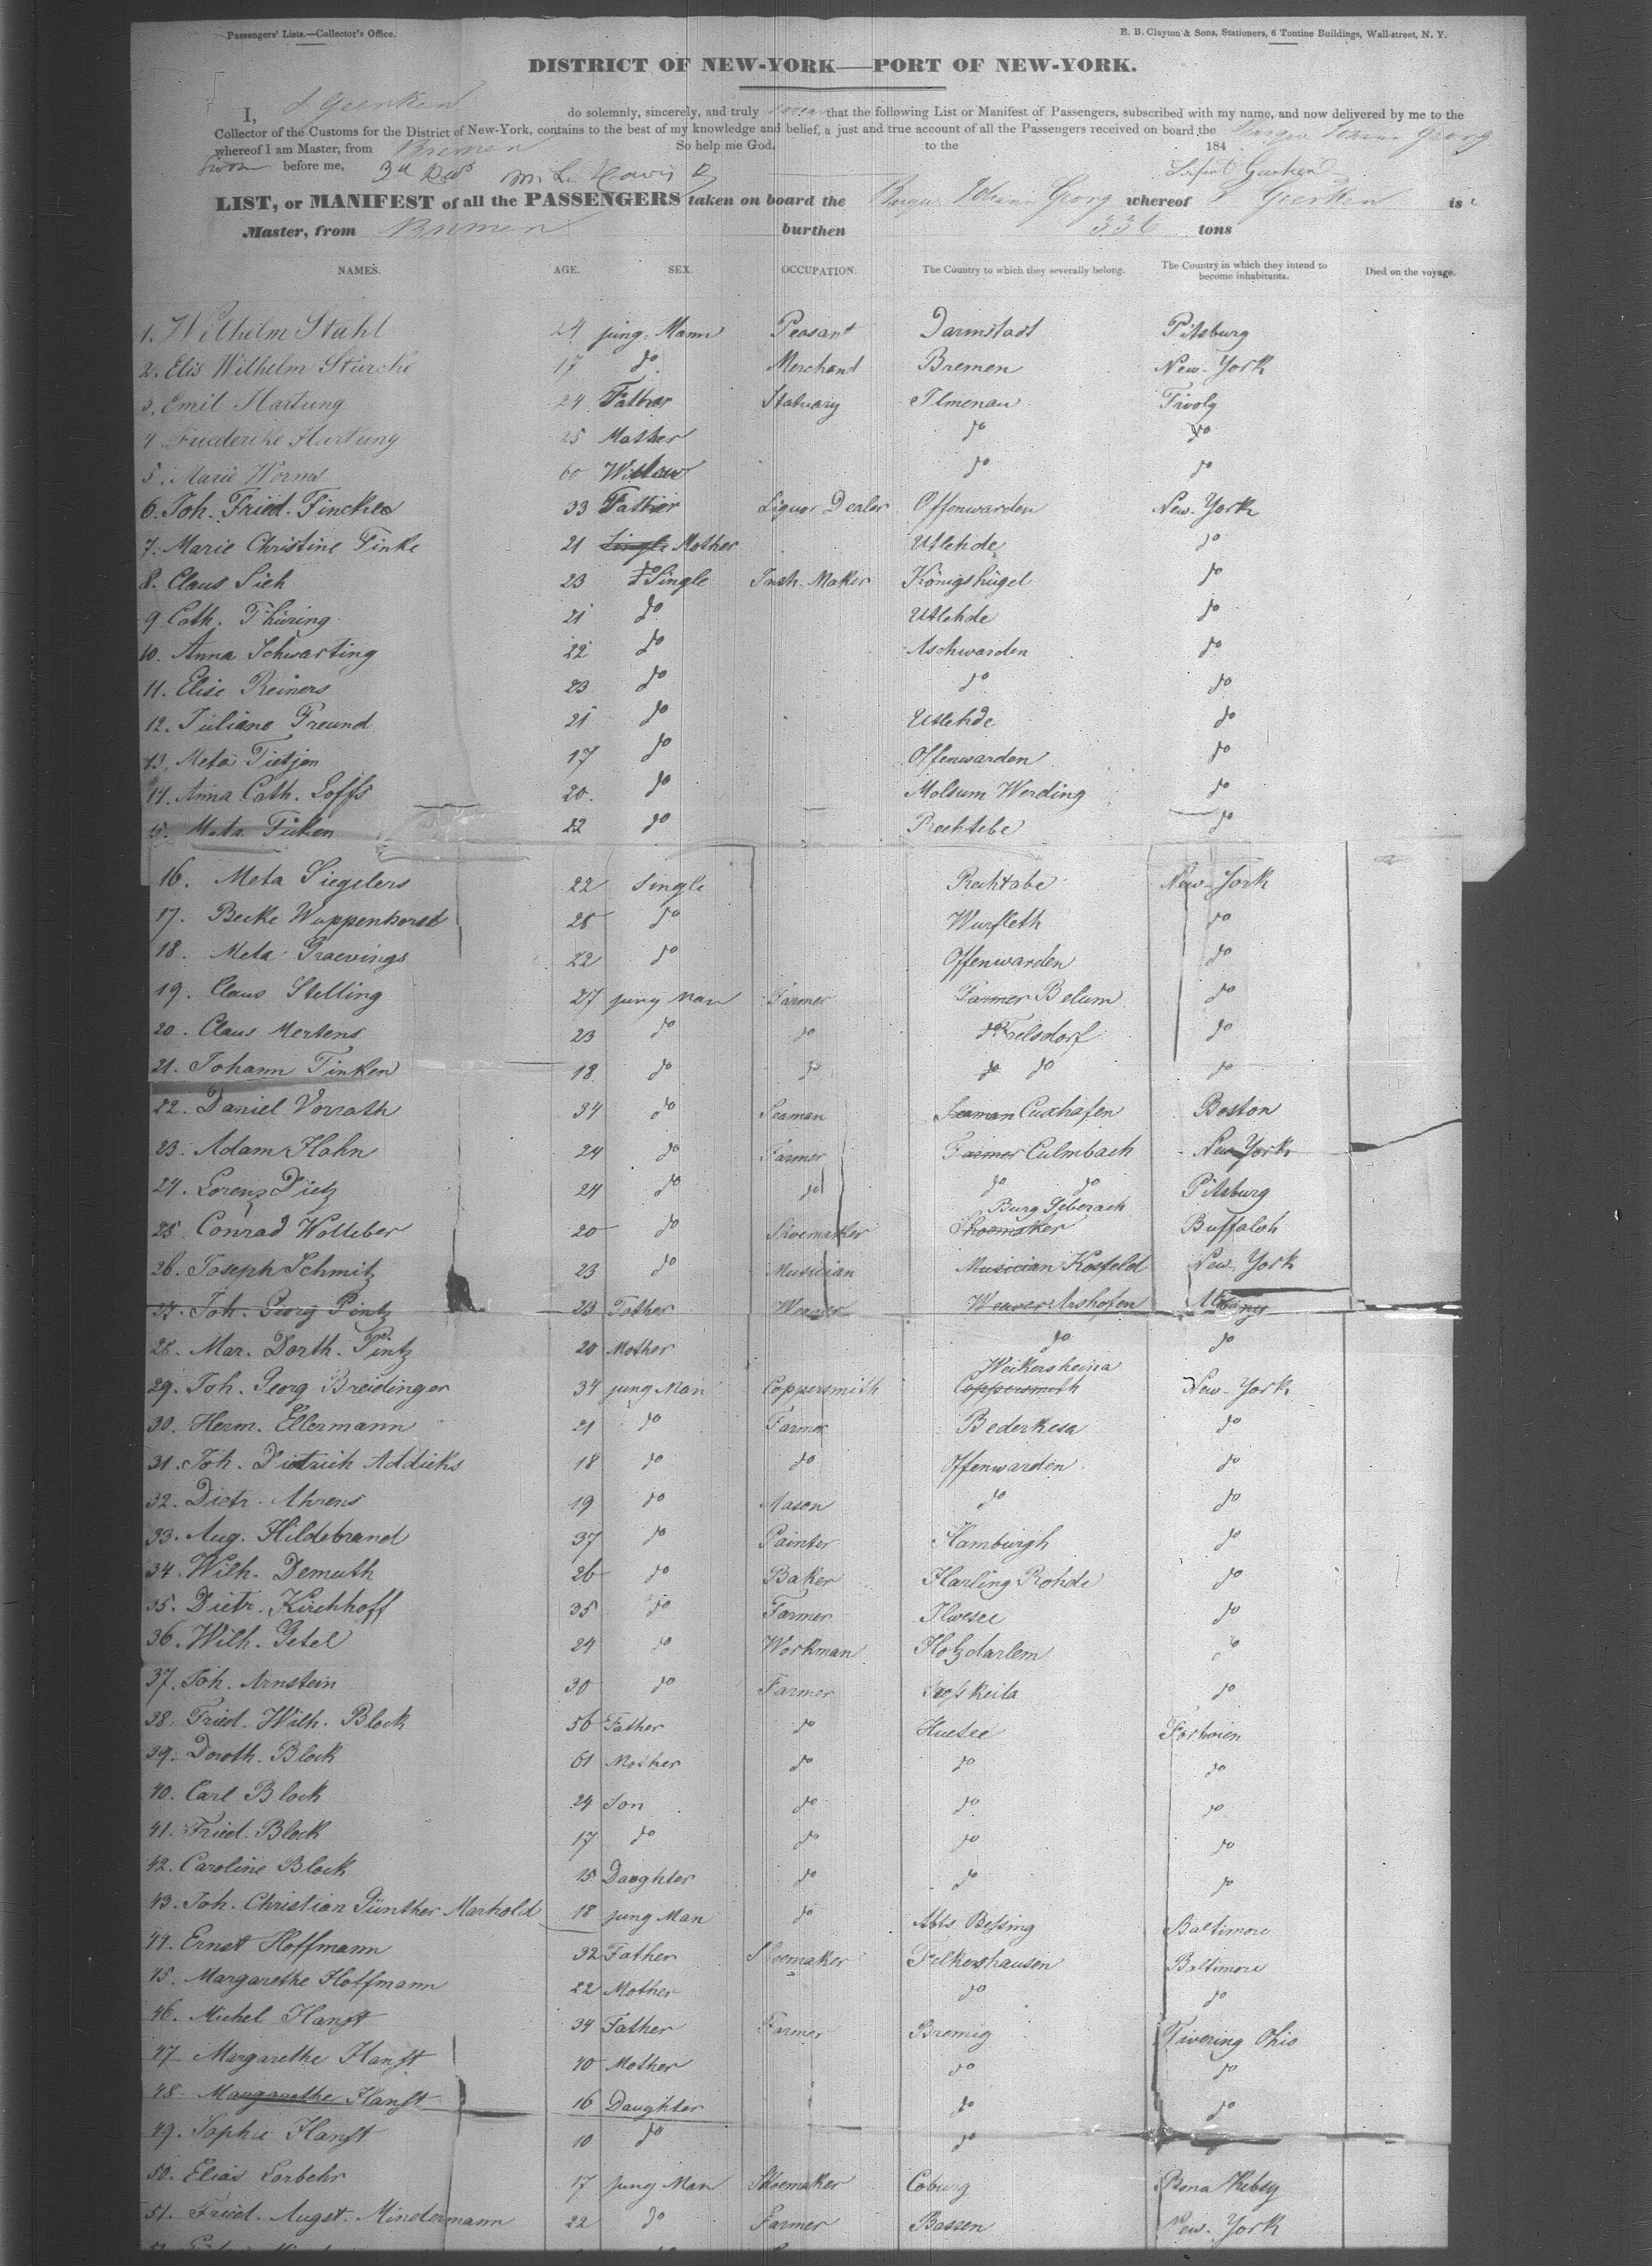 Passengers' Lists.—Collector's Office.
E. B. Clayton & Sons, Stationers, 6 Tontine Buildings, Wall-street, N. Y.
DISTRICT OF NEW-YORK—PORT OF NEW-YORK.
I, Gerken do solemnly, sincerely, and truly that the following List or Manifest of Passengers, subscribed with my name, and now delivered by me to the
Collector of the Customs for the District of New-York, contains to the best of my knowledge and belief, a just and true account of all the Passengers received on board the Barque Johann Georg
whereof I am Master, from Bremen So help me God. to the 184
before me, 3d
LIST, or MANIFEST of all the PASSENGERS taken on board the Barque Johann Georg whereof Gerken is
Master, from Bremen burthen 336 tons
NAMES. AGE. SEX. OCCUPATION. The Country to which they severally belong. The Country in which they intend to become inhabitants. Died on the voyage.
1. Wilhelm Stahl 24 jung. Mann Peasant Darmstadt Pitsburg
2. Elis Wilhelm Stürcke 17 do Merchand Bremen New-York
3. Emil Hartung 24 Father Statuary Ilmenau Tivoly
4. Friederike Hartung 25 Mother do do
5. Marie Worms 60 Widow do do
6. Joh. Fried. Fincke 33 Father Liquor Dealer Offenwarden New-York
7. Marie Christine Finke 21 Single Mother Utlehde do
8. Claus Sieh 23 Single Instr. Maker Königshügel do
9. Cath. Thüring 21 do Utlehde do
10. Anna Schwarting 22 do Aschwarden do
11. Elise Reiners 23 do do do
12. Juliane Freund 21 do Utlehde do
13. Meta Tietjen 17 do Offenwarden do
14. Anna Cath. Loffs 20. do Molsum Werding do
15. Meta Ficken 22 do Rechtebe do
16. Meta Siegelers 22 Single Rechtabe New-York
17. Becke Wappenhorst 28 do Wurfleth do
18. Meta Graevings 22 do Offenwarden do
19. Claus Stelling 27 jung Man Farmer Farmer Belum do
20. Claus Mertens 23 do do do Frelsdorf do
21. Johann Finken 18 do do do do do
22. Daniel Vorrath 34 do Seaman Seaman Cuxhafen Boston
23. Adam Hahn 24 do Farmer Farmer Culmbach New York
24. Lorenz Dietz 24 do do do do Pitsburg
Burg Geberach
25. Conrad Wolleber 20 do Shoemaker Shoemaker Buffaloh
26. Joseph Schmitz 23 do Musician Musician Kosfeld New-York
27. Joh. Georg Pintz 28 Father Weaver Weaver Arshofen Albany
28. Mar. Dorth. Pintz 20 Mother do do
Weikersheina
29. Joh. Georg Breidinger 34 jung Man Coppersmith Coppersmith New-York
30. Herm. Ellermann 21 do Farmer Bederkesa do
31. Joh. Dietrich Addicks 18 do do Offenwarden do
32. Dietr. Ahrens 19 do Mason do do
33. Aug. Hildebrand 37 do Painter Hamburgh do
34. Wilh. Demuth 26 do Baker Harling Rohde do
35. Dietr. Kirchhoff 35 do Farmer Ilwesee do
36. Wilh. Getel 24 do Workman Holzdarlem do
37. Joh. Arnstein 30 do Farmer Groskeila do
38. Fried. Wilh. Block 56 Father do Huesee
39. Doroth. Block 61 Mother do do do
40. Carl Block 24 Son do do do
41. Fried. Block 17 do do do do
42. Caroline Block 15 Daughter do do do
43. Joh. Christian Günther Markold 18 jung Man do Abts Bessing Baltimore
44. Ernst Hoffmann 32 Father Shoemaker Felkershausen Baltimore
45. Margarethe Hoffmann 22 Mother do do
46. Michel Hanft 34 Father Farmer Bremig Tivering Ohio
47. Margarethe Hanft 40 Mother do do
48. Margarethe Hanft 16 Daughter do do
49. Sophie Hanft 10 do do
50. Elias Lorbehr 17 jung Man Shoemaker Coburg
51. Fried. Augst. Mindermann 22 do Farmer Bassen New-York